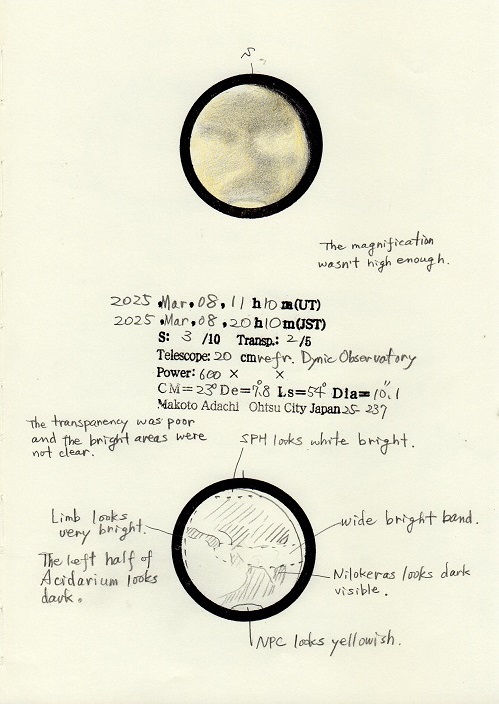 S
The magnification
wasn't high enough.
2025 Mar. 08, 11 h 10 m (UT)
2025 Mar. 08, 20 h 10 m (JST)
S: 3 /10 Transp.: 2 /5
Telescope: 20 cm refr. Dynic Observatory
Power: 600 × ×
CM= 23° De= 7.°8 Ls= 54° Dia= 10."1
Makoto Adachi Ohtsu City Japan 25-237
The transparency was poor
and the bright areas were
not clear.
SPH looks white bright.
Limb looks
very bright.
wide bright band.
The left half of
Acidarium looks
dark.
Nilokeras looks dark
visible.
NPC looks yellowish.